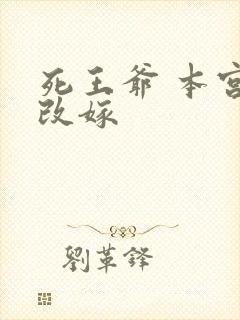 死王爺 本宮
改嫁
劉革鋒